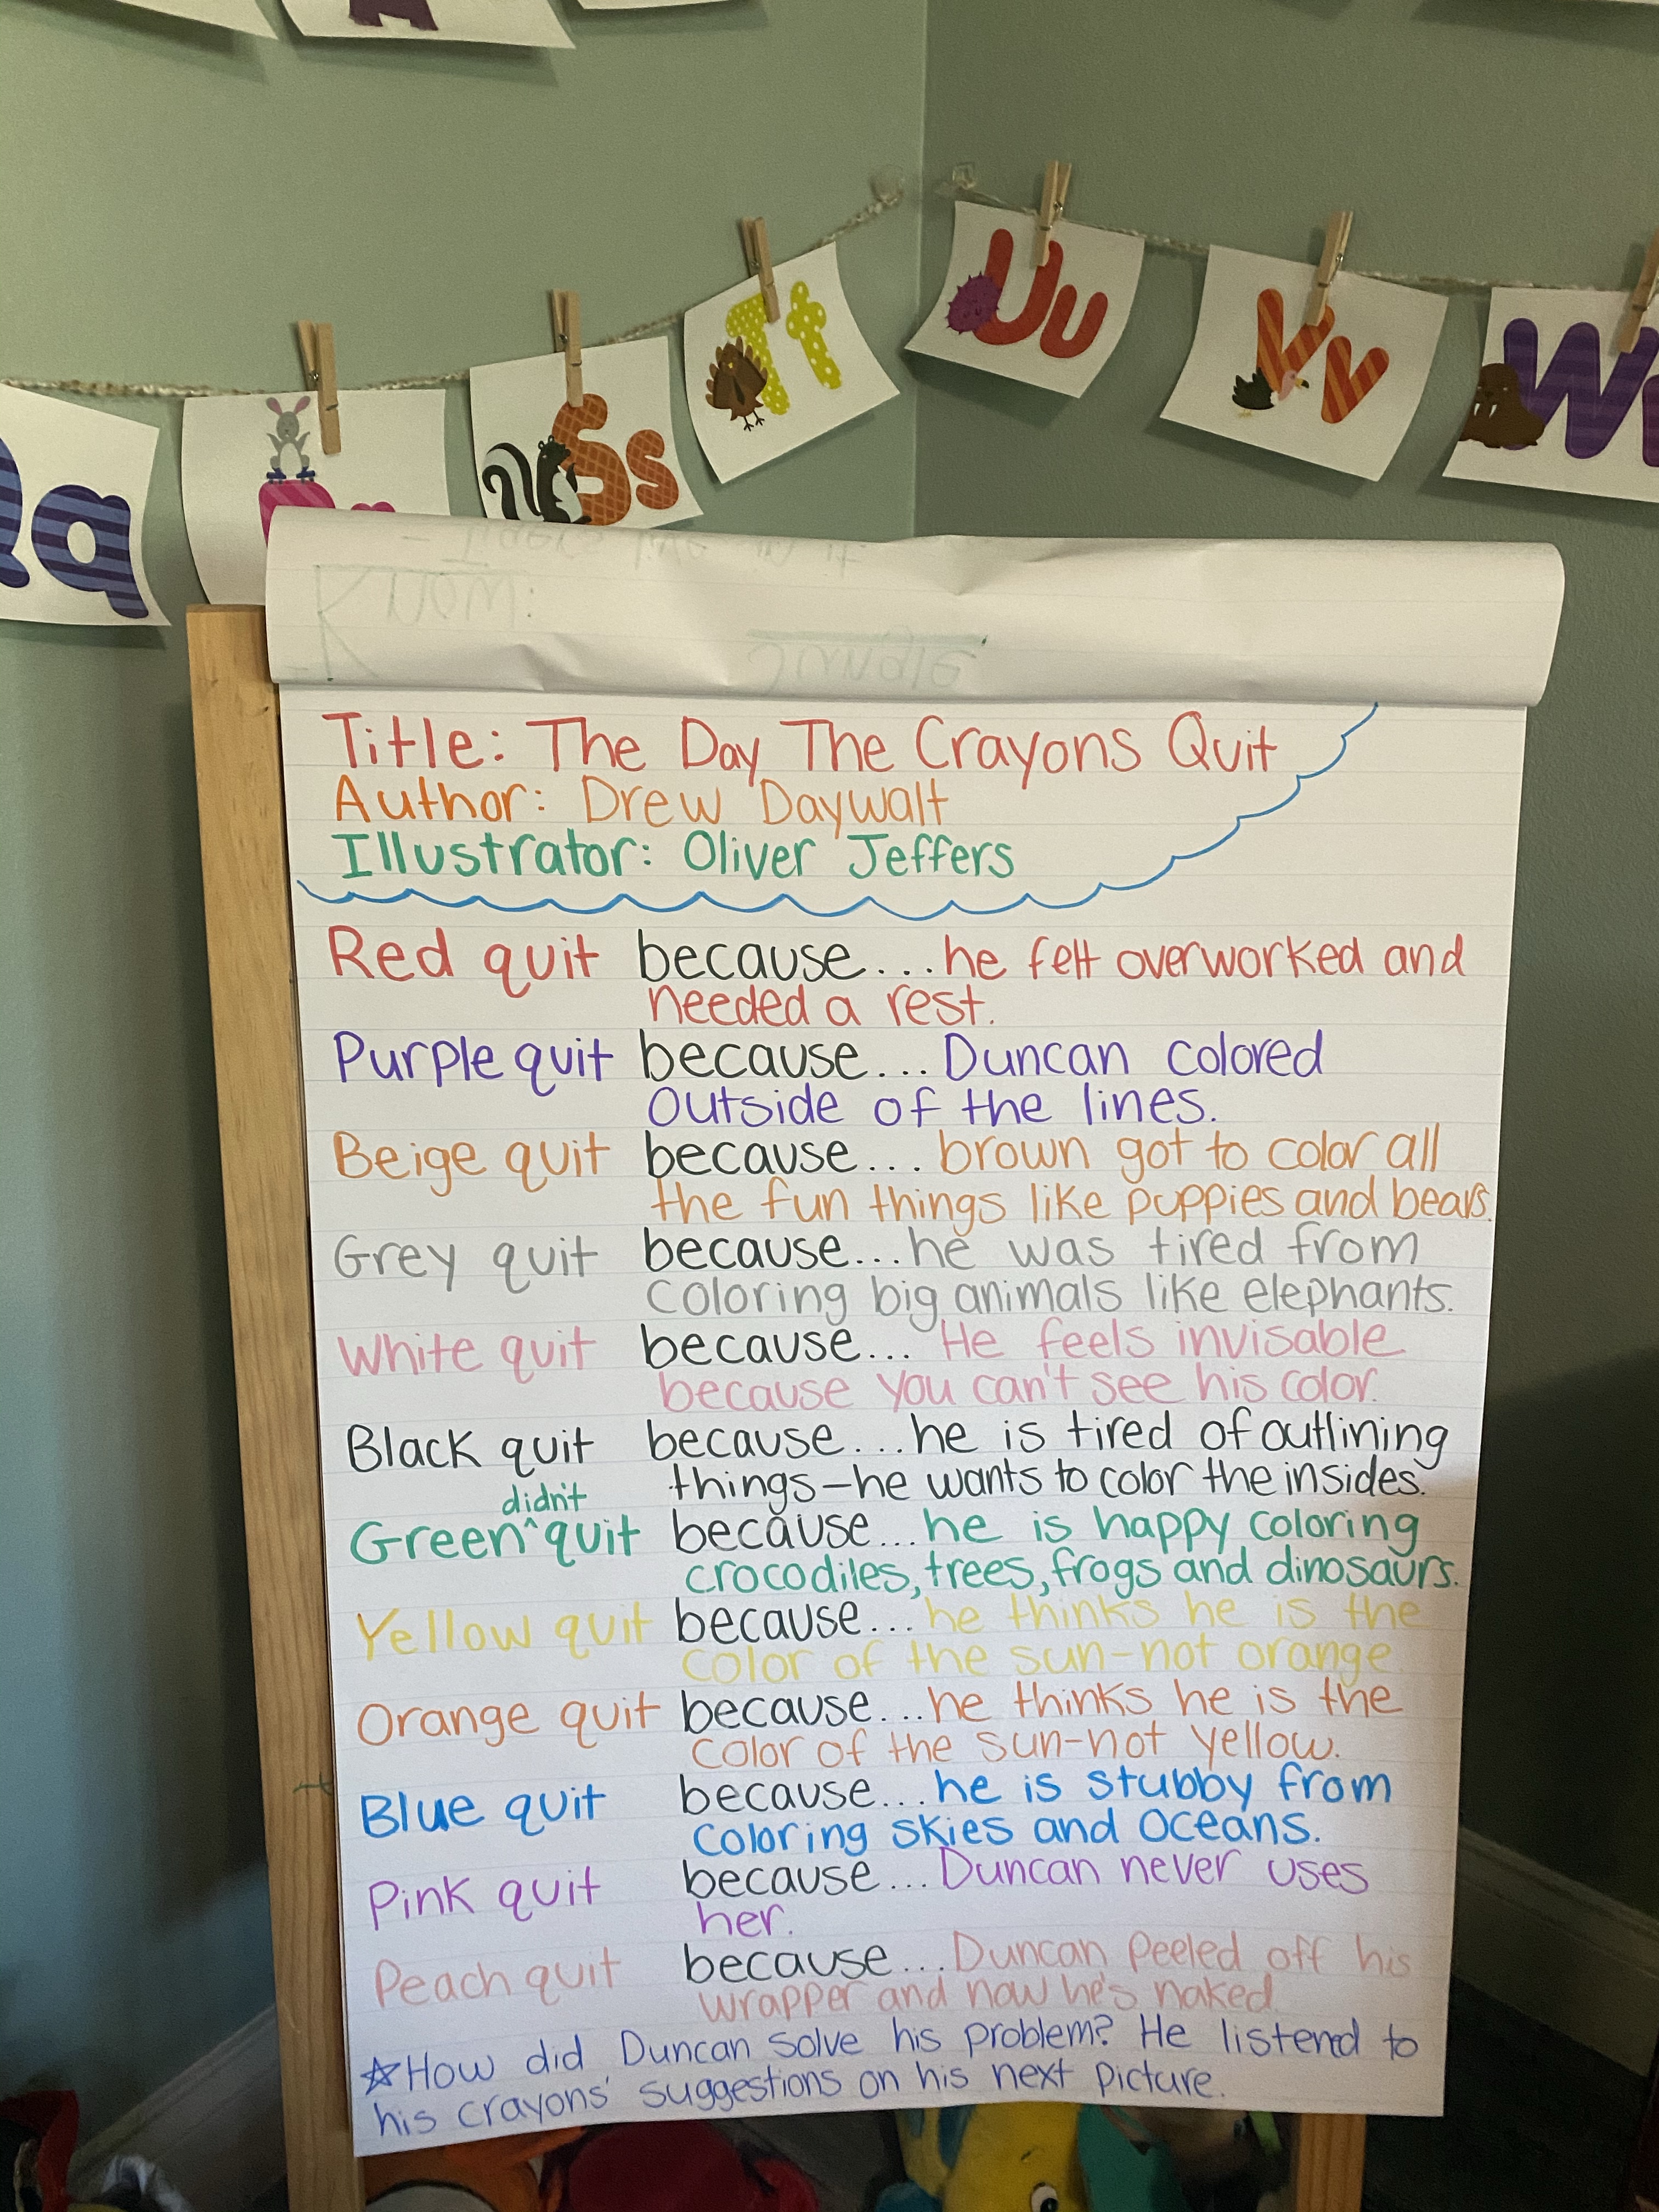 Qq
Rr
Ss
Tt
Uu
Vv
Ww
Know:
Jungle
Title: The Day The Crayons Quit
Author: Drew Daywalt
Illustrator: Oliver Jeffers
Red quit because...he felt overworked and
needed a rest.
Purple quit because... Duncan colored
outside of the lines.
Beige quit because... brown got to color all
the fun things like puppies and bears.
Grey quit because...he was tired from
coloring big animals like elephants.
White quit because... He feels invisable
because you can't see his color.
Black quit because...he is tired of outlining
things-he wants to color the insides.
didn't
Green ^ quit because...he is happy coloring
crocodiles, trees, frogs and dinosaurs.
Yellow quit because...he thinks he is the
color of the sun-not orange.
Orange quit because...he thinks he is the
color of the sun-not yellow.
Blue quit because...he is stubby from
coloring skies and oceans.
Pink quit because...Duncan never uses
her.
Peach quit because...Duncan peeled off his
wrapper and now he's naked.
☆How did Duncan solve his problem? He listened to
his crayons' suggestions on his next picture.